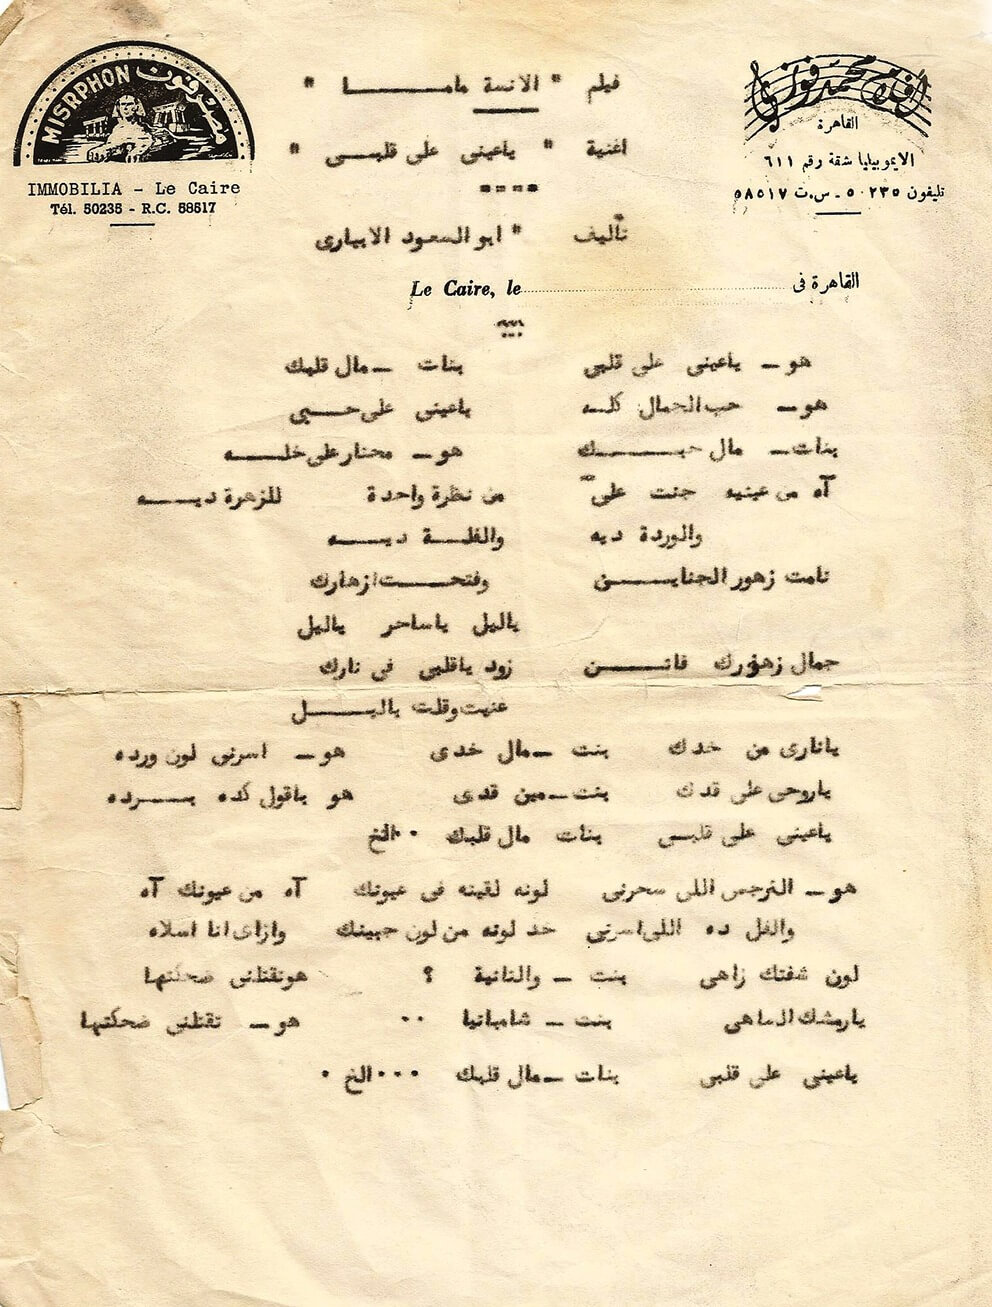 MISRPHON مصرفون
IMMOBILIA - Le Caire
Tél. 50235 - R.C. 58517
أفلام محمد فوزى
القاهرة
الايموبيليا شقة رقم ٦١١
تليفون ٥٠٢٣٥ - س.ت ٥٨٥١٧
فيلم " الانسة مامـــا "
اغنية " ياعينى على قلبـى "
تأليف " ابو السعود الابيارى
Le Caire, le القاهرة فى
هو ـ ياعينى على قلبى بنات ـ مال قلبك
هو ـ حب الجمال كلـه ياعينى على حـبى
بنات ـ مال حبـك هو ـ محتار على خلـه
آه من عينيه جنت علىّ من نظرة واحدة للزهرة ديـه
والوردة ديه والفلـة ديـه
نامت زهور الجنايـن وفتحـت ازهارك
ياليل ياساحر ياليل
جمال زهورك فاتـن زود ياقلبى فى نارك
غنيت وقلت ياليـل
يانارى من خدك بنت ـ مال خدى هو ـ اسرنى لون ورده
ياروحى على قدك بنت ـ مين قدى هو ياقول كده بـرده
ياعينى على قلبـى بنات مال قلبك ٠٠ الخ
هو ـ النرجس اللى سحرنى لونه لقيته فى عيونك آه من عيونك آه
والفل ده اللى اسرنى خد لونه من لون جبينك وازاى انا اسلاه
لون شفتك زاهى بنت ـ والتانية ؟ هو تقتلنى ضحكتها
يارمشك الساهى بنت ـ شامبانيا ٠٠ هو ـ تقتلنى ضحكتها
ياعينى على قلبى بنات ـ مال قلبك ٠٠٠ الخ ٠